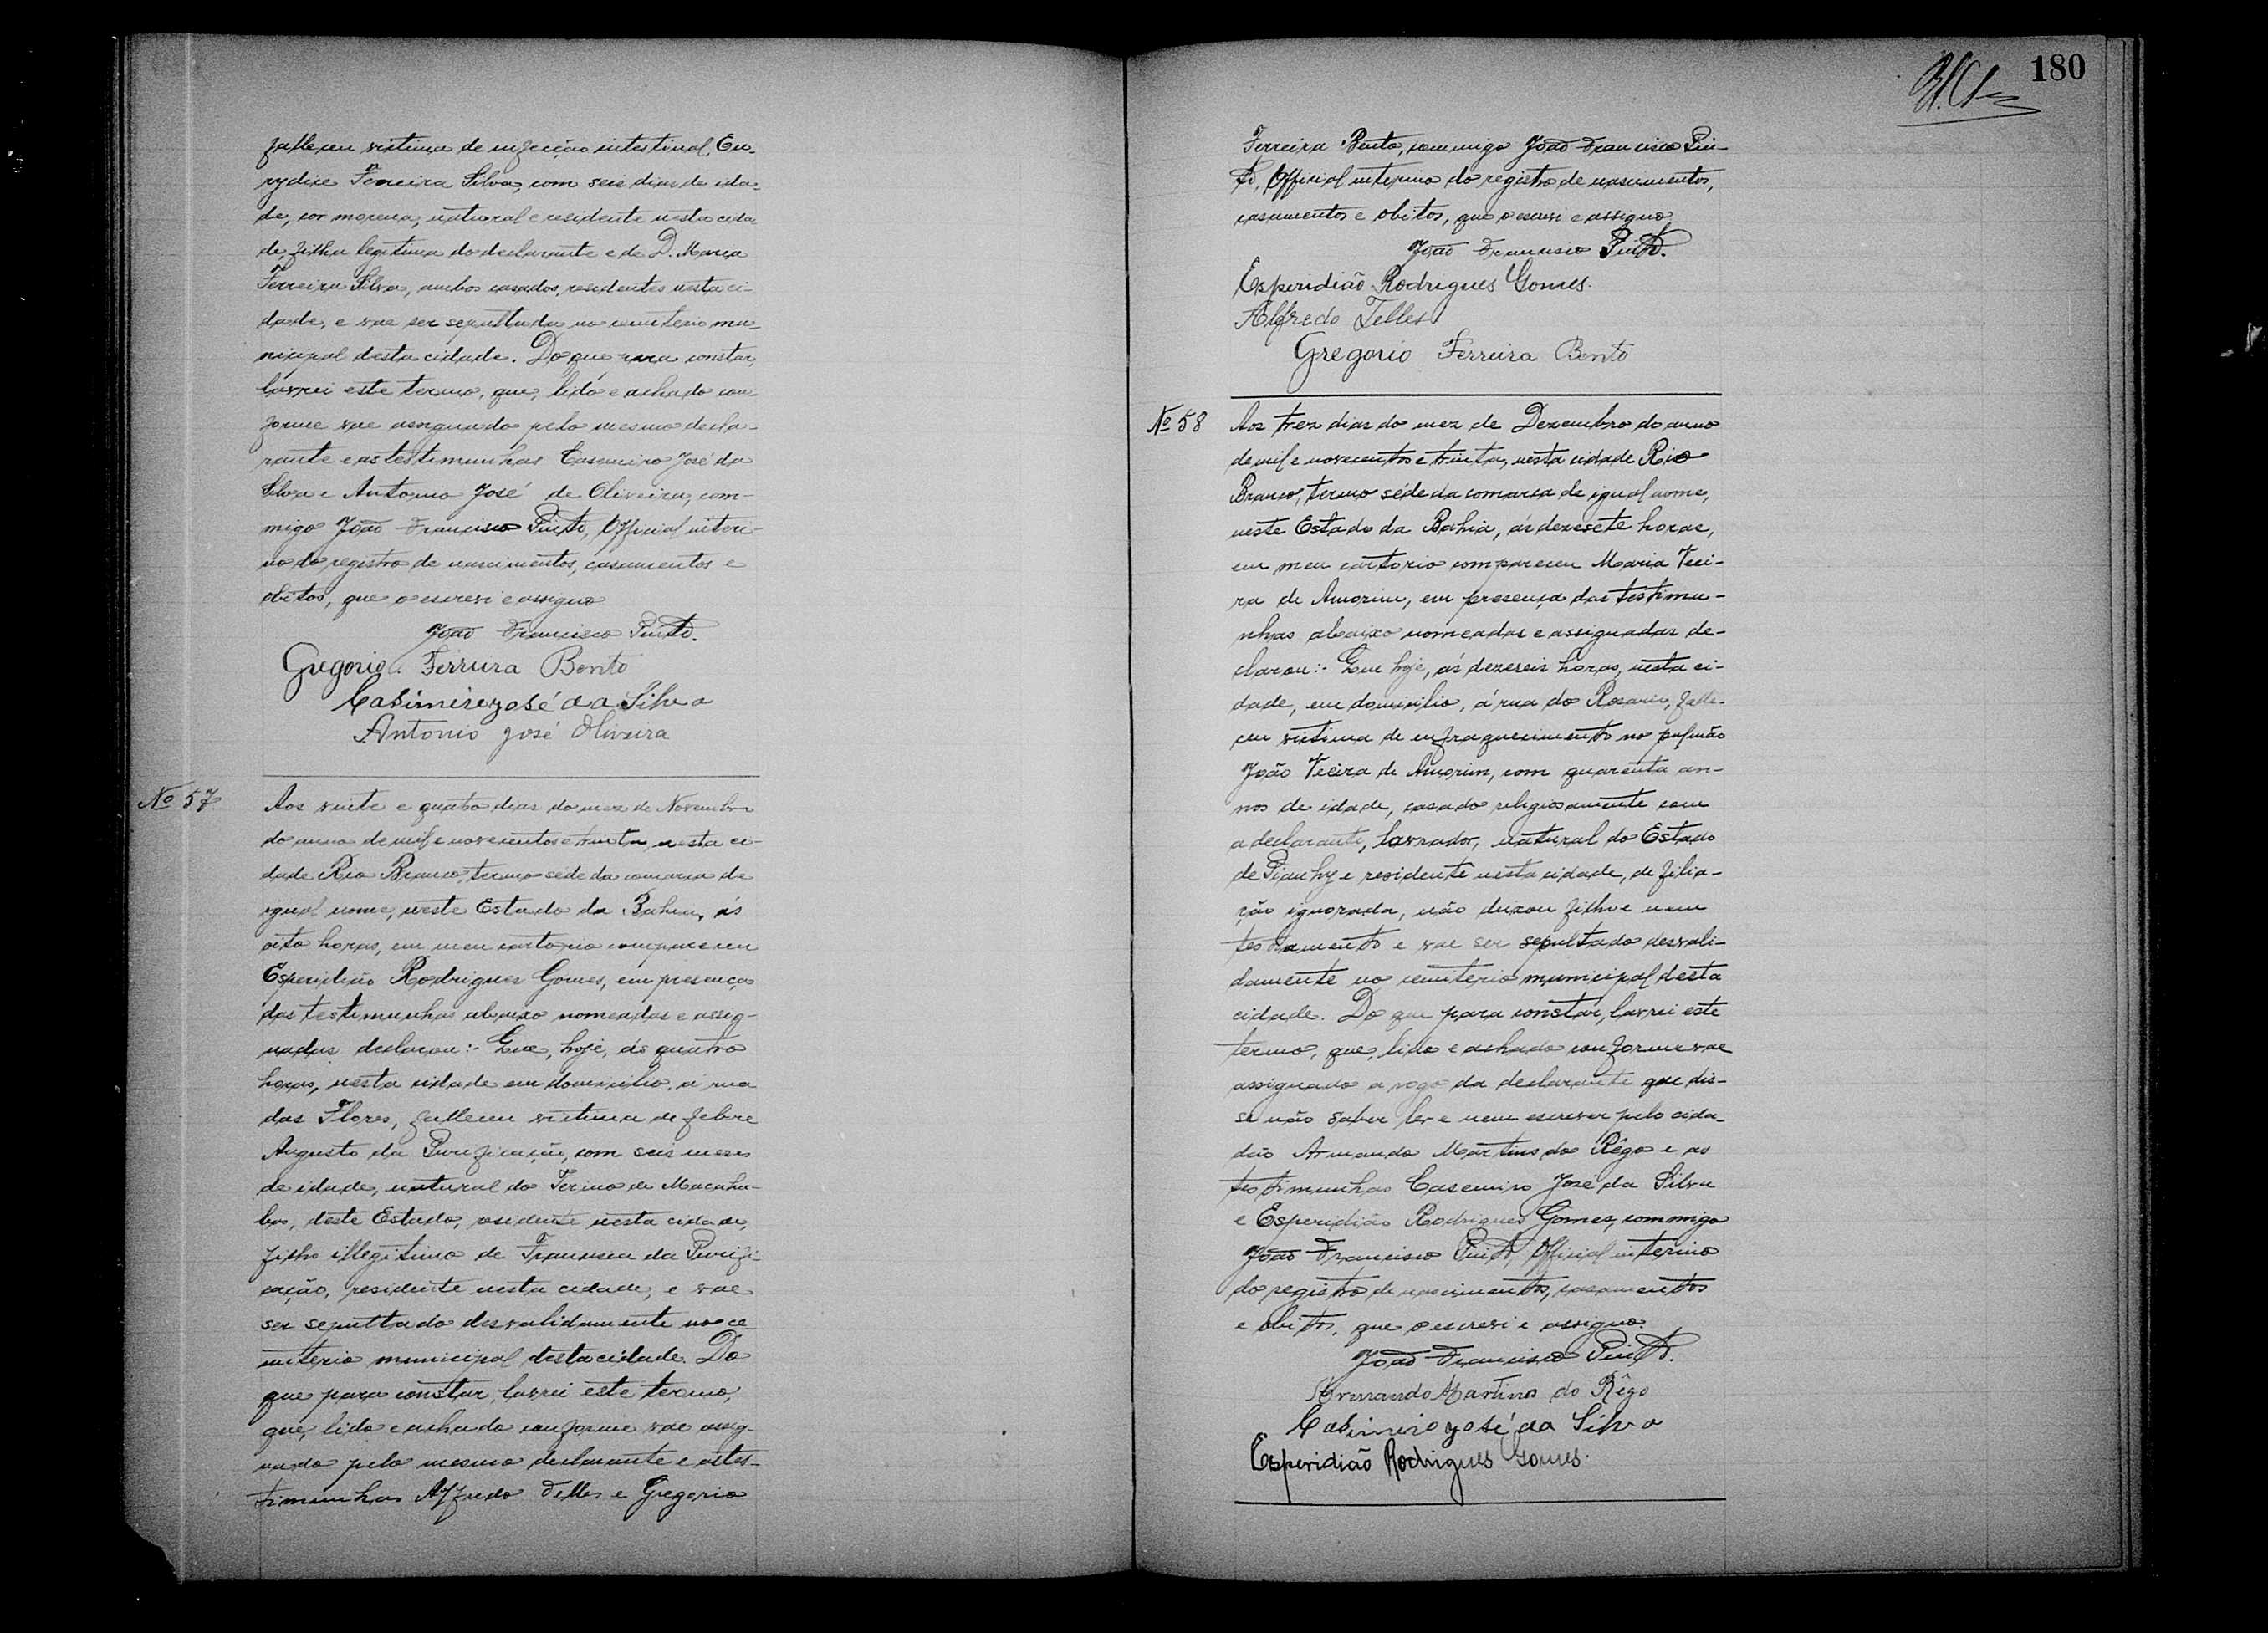 falleceu victima de infecção intestinal, Eu-
rydice Ferreira Silva, com seis dias de ida-
de, cor morena, natural e residente nesta cida-
de, filha legitima do declarante e de D. Maria
Ferreira Silva, ambos casados, residentes nesta ci-
dade, e vae ser sepultada no cemiterio mu-
nicipal desta cidade. Do que para constar,
lavrei este termo, que, lido e achado con-
forme vae assignado pelo mesmo decla-
rante e as testimunhas Casemiro José da
Silva e Antonio José de Oliveira, com-
migo João Francisco Pinto, Official interi-
no do registro de nascimentos, casamentos e
obitos, que o escrevi e assigno
João Francisco Pinto.
Gregorio Ferreira Bento
Casimiro José da Silva
Antonio José Oliveira
Nº 57
Aos vinte e quatro dias do mez de Novembro
do anno de mil e novecentos e trinta, nesta ci-
dade Rio Branco, termo séde da comarca de
igual nome, neste Estado da Bahia, ás
oito horas, em meu cartorio compareceu
Esperidião Rodrigues Gomes, em presença
das testimunhas abaixo nomeadas e assig-
nadas declarou:- Que, hoje, ás quatro
horas, nesta cidade em domicilio, á rua
das Flores, falleceu victima de febre
Augusto da Purificação, com seis mezes
de idade, natural do Termo de Macahu-
bas, deste Estado, residente nesta cidade,
filho illegitimo de Francisca da Purifi-
cação, residente nesta cidade, e vae
ser sepultado desvalidamente no ce-
miterio municipal desta cidade. Do
que para constar, lavrei este termo,
que, lido e achado conforme vae assig-
nado pelo mesmo declarante e as tes-
timunhas Alfredo Telles e Gregorio
180
Ferreira Bento, commigo João Francisco Pin-
to, Official interino do registro de nascimentos,
casamentos e obitos, que o escrevi e assigno
João Francisco Pinto.
Esperidião Rodrigues Gomes.
Alfredo Telles
Gregorio Ferreira Bento
Nº 58
Aos trez dias do mez de Dezembro do anno
de mil e novecentos e trinta, nesta cidade Rio
Branco, termo séde da comarca de igual nome,
neste Estado da Bahia, ás dezesete horas,
em meu cartorio compareceu Maria Viei-
ra de Amorim, em presença das testimu-
nhas abaixo nomeadas e assignadas de-
clarou:- Que hoje, ás dezeseis horas, nesta ci-
dade, em domicilio, á rua do Rosario, falle-
ceu victima de enfraquecimento no pulmão
João Vieira de Amorim, com quarenta an-
nos de idade, casado religiosamente com
a declarante, lavrador, natural do Estado
de Piauhy e residente nesta cidade, de filia-
ção ignorada, não deixou filho e nem
testamento e vae ser sepultado desvali-
damente no cemiterio municipal desta
cidade. Do que para constar, lavrei este
termo, que, lido e achado conforme vae
assignado a rogo da declarante que dis-
se não saber ler e nem escrever pelo cida-
dão Armando Martins do Rêgo e as
testimunhas Casemiro José da Silva
e Esperidião Rodrigues Gomes, commigo
João Francisco Pinto, Official interino
do registro de nascimentos, casamentos
e obitos, que o escrevi e assigno.
João Francisco Pinto.
Armando Martins do Rêgo
Casimiro José da Silva
Esperidião Rodrigues Gomes.